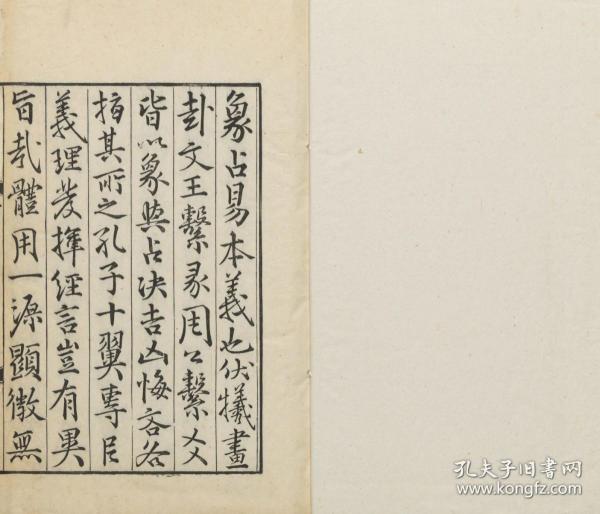 象占易本義也伏犧畫
卦文王繫彖周公繫爻
皆以象與占决吉凶悔吝各
指其所之孔子十翼專㠯
義理發揮經言豈有異
旨哉體用一源顯微無
孔夫子旧书网
www.kongfz.com